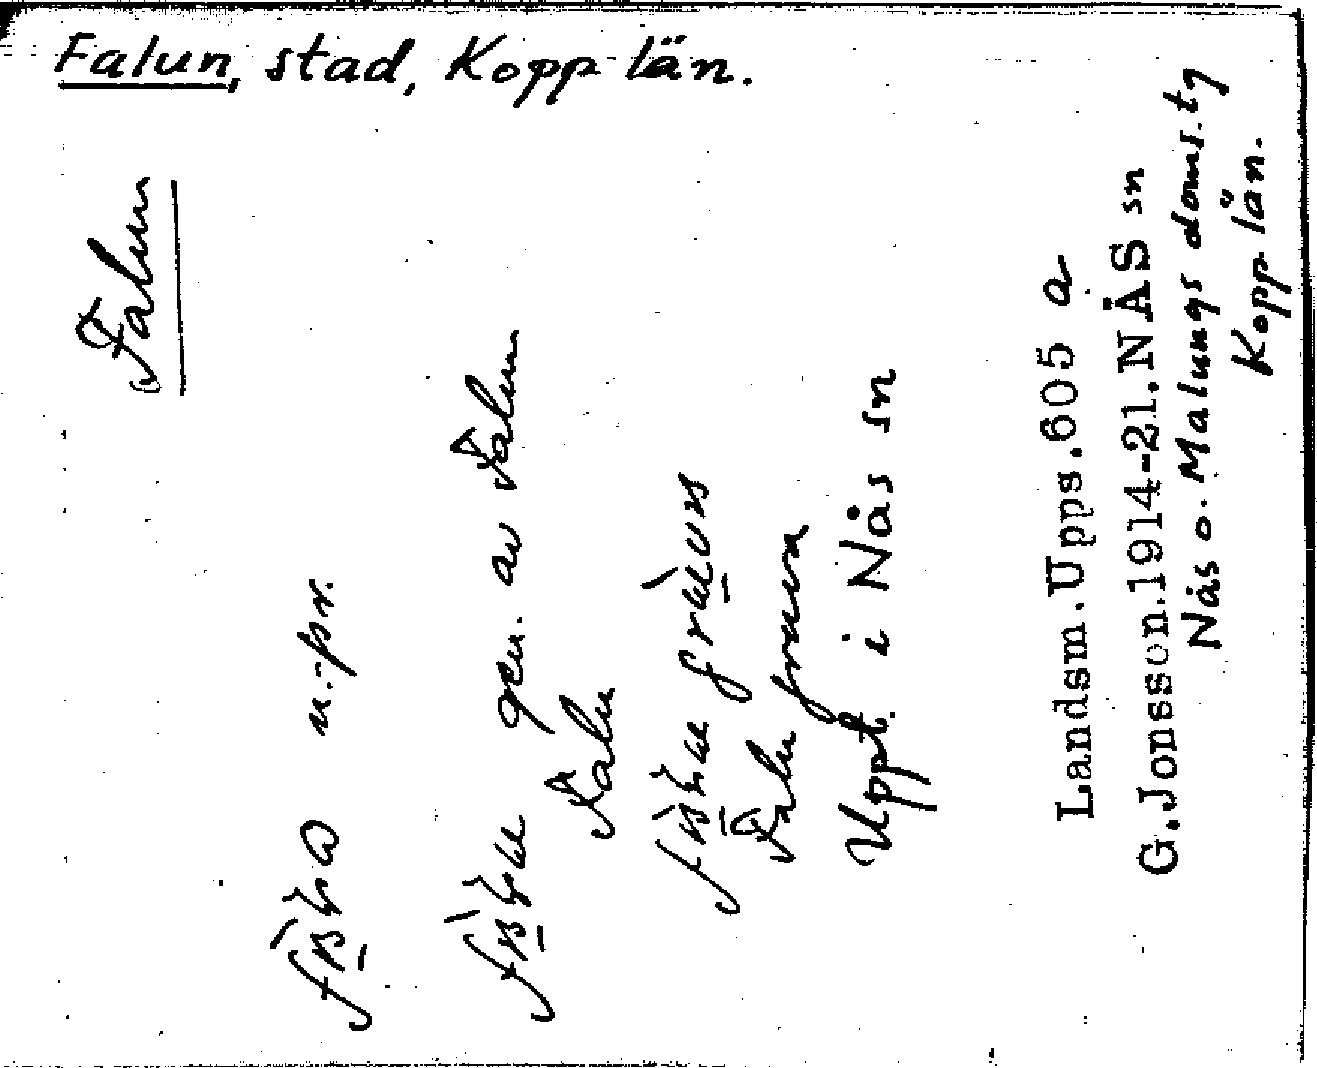 Falun, stad, Kopp län.
Falun
n.-pr.
gen. av Falun
Falu
Falu gruva
Uppt. i Nås sn
Landsm.Upps.605 a
G.Jonsson.1914-21.NÅS sn
Nås o. Malungs doms.tg
Kopp län.